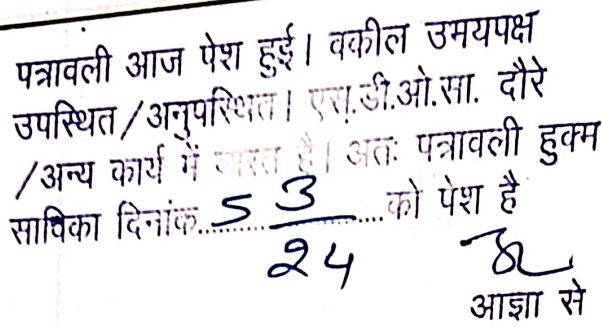 पत्रावली आज पेश हुई। वकील उभयपक्ष
उपस्थित/अनुपस्थित। एस.डी.ओ.सा. दौरे
/अन्य कार्य में व्यस्त है। अतः पत्रावली हुक्म
साविका दिनांक..5 3/24....को पेश है
आज्ञा से